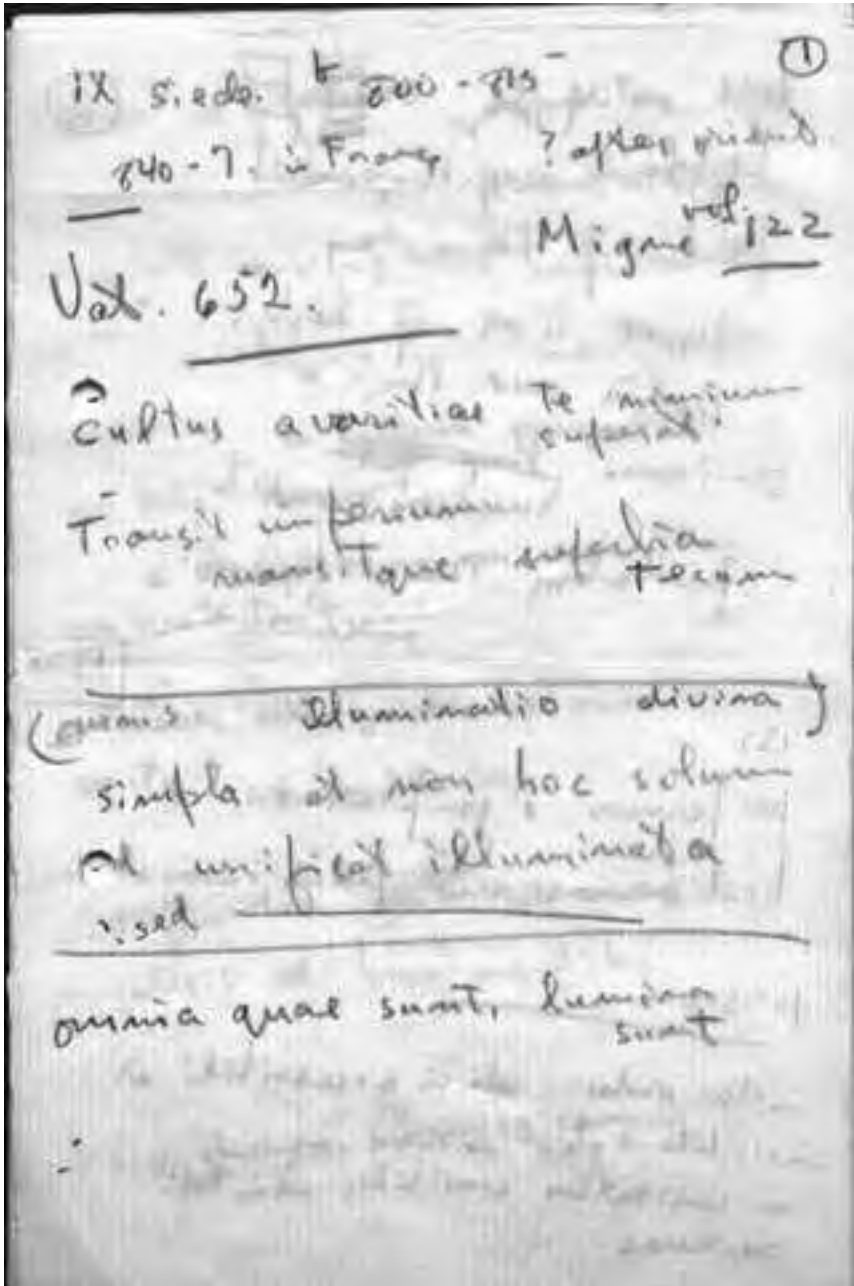 ①
IX siecle. b 800 - 815
840 - 7. in France ? after orient.
Migne vol. 122
Vat. 652.
Cultus avaritiae Te nimium
superat.
Transit imperium
mansitque superbia
tecum
(omnis Illuminatio divina)
simpla et non hoc solum
et unificat illuminata
sed
omnia quae sunt, lumina
sunt